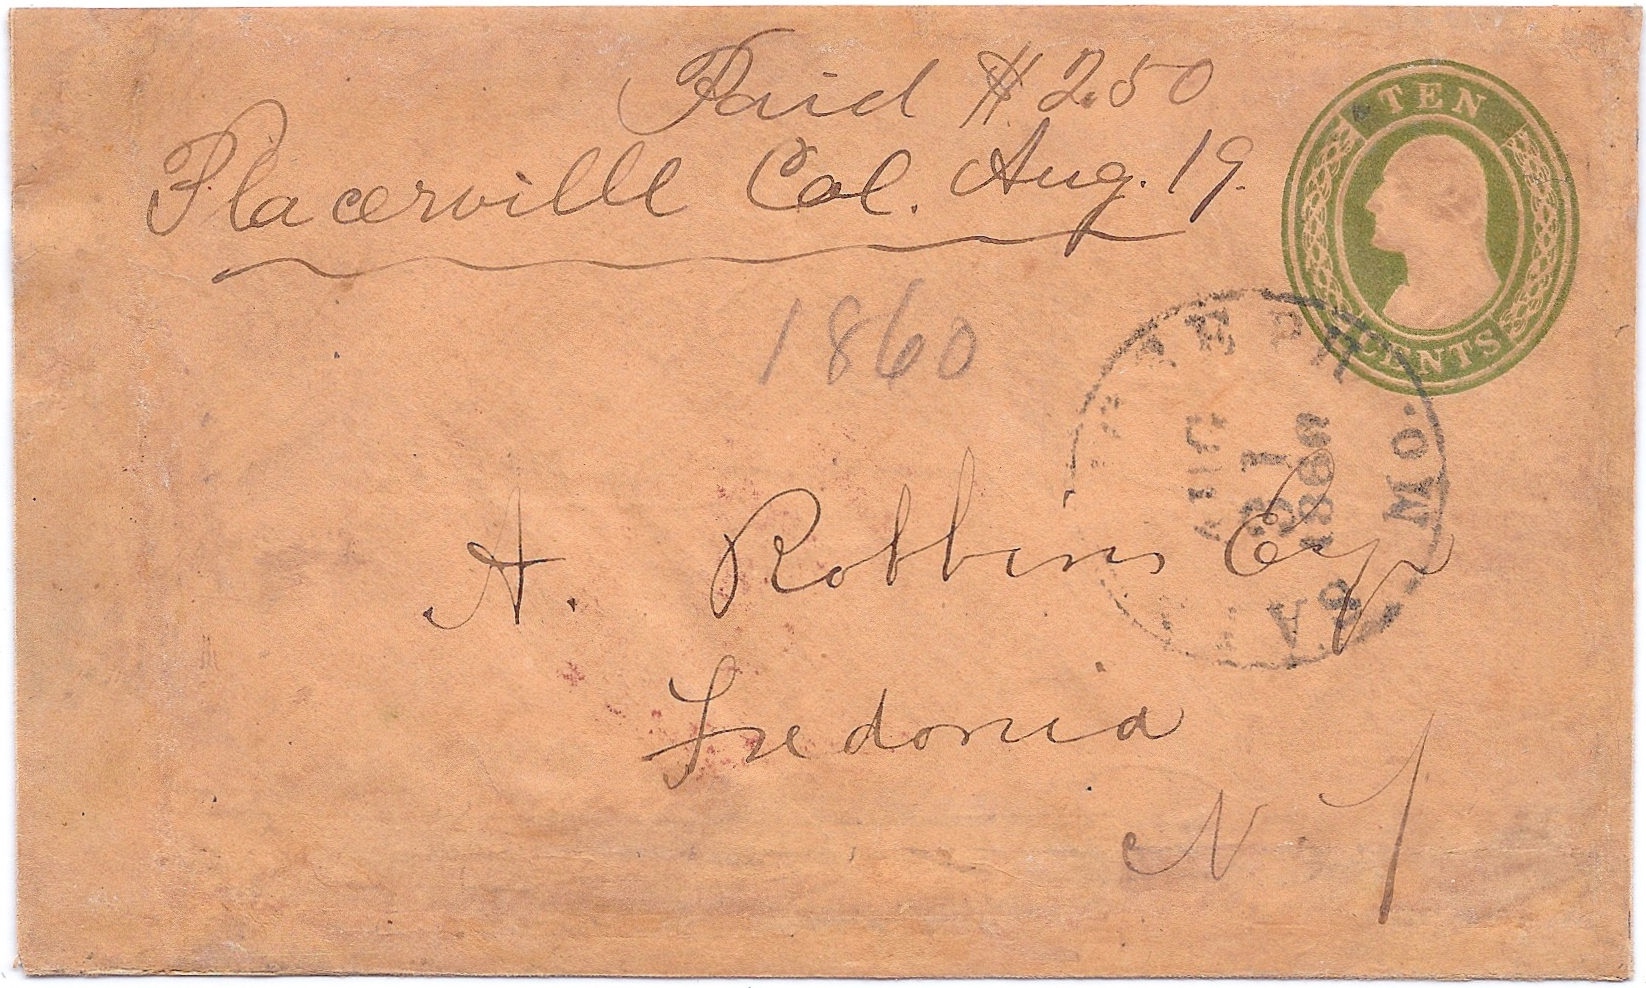 Paid $2.50
Placerville Cal. Aug. 19.
TEN
CENTS
1860
MO.
AUG
31
1860
A. Robbins Esq
Fredonia
N. Y